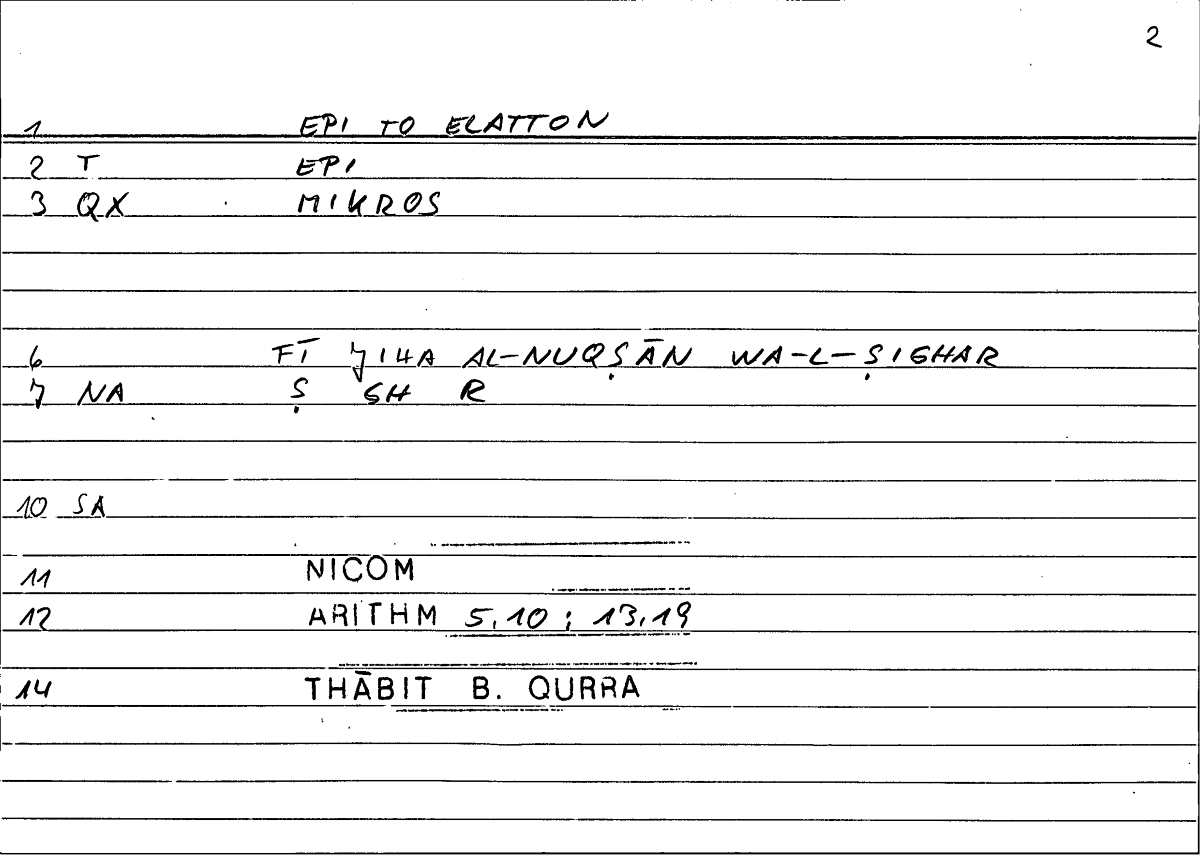 2
1 EPI TO ELATTON
2 T EPI
3 QX MIKROS
6 FĪ JIHA AL-NUQṢĀN WA-L-ṢIGHAR
7 NA Ṣ GH R
10 SA
11 NICOM
12 ARITHM 5,10 ; 13,19
14 THĀBIT B. QURRA